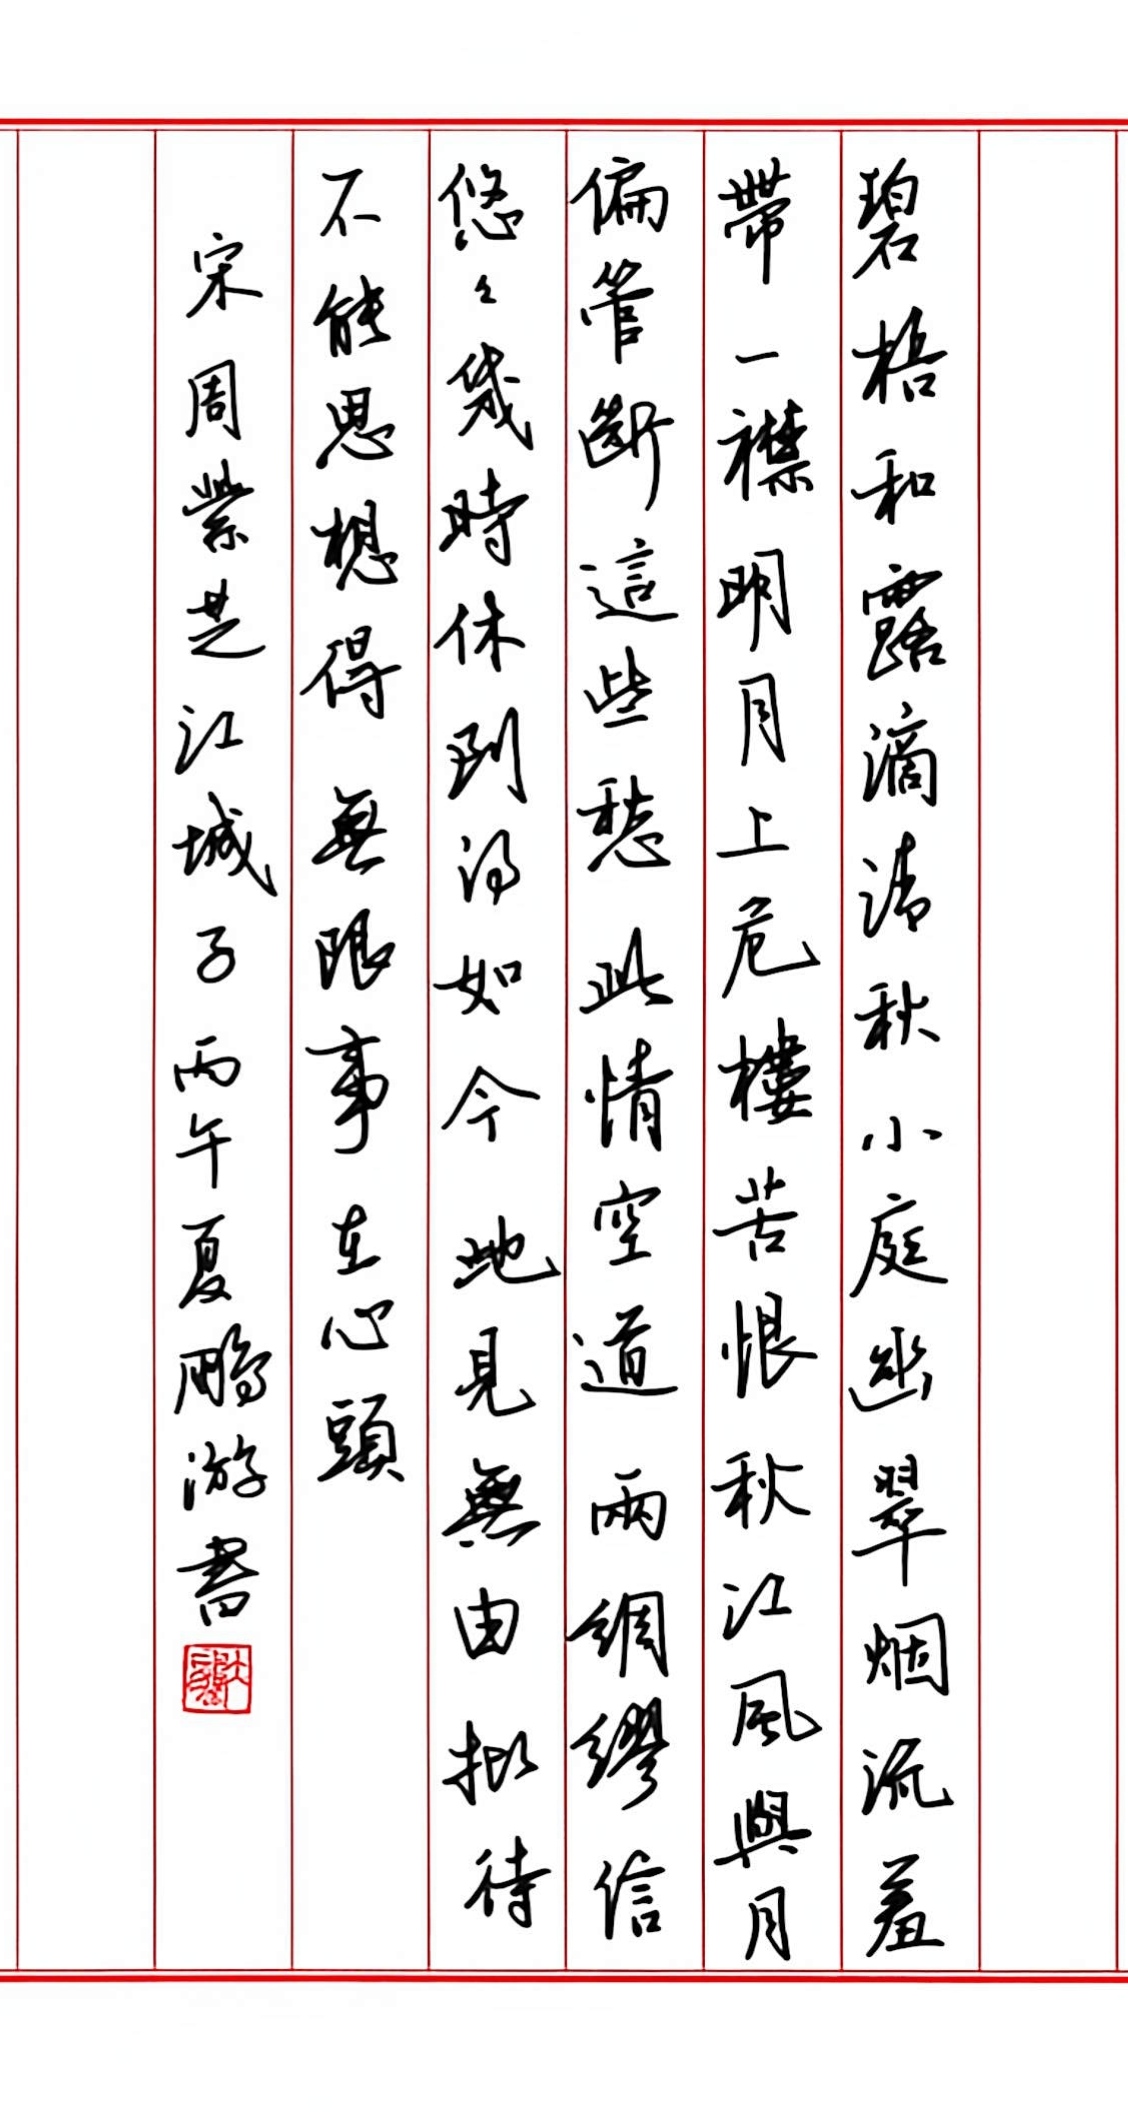 碧梧和露滴清秋小庭幽翠烟流羞
帶一襟明月上危樓苦恨秋江風與月
偏管斷這些愁此情空道兩綢繆信
悠々幾時休到得如今地見無由拟待
不能思想得無限事在心頭
宋周紫芝江城子丙午夏鵬游書